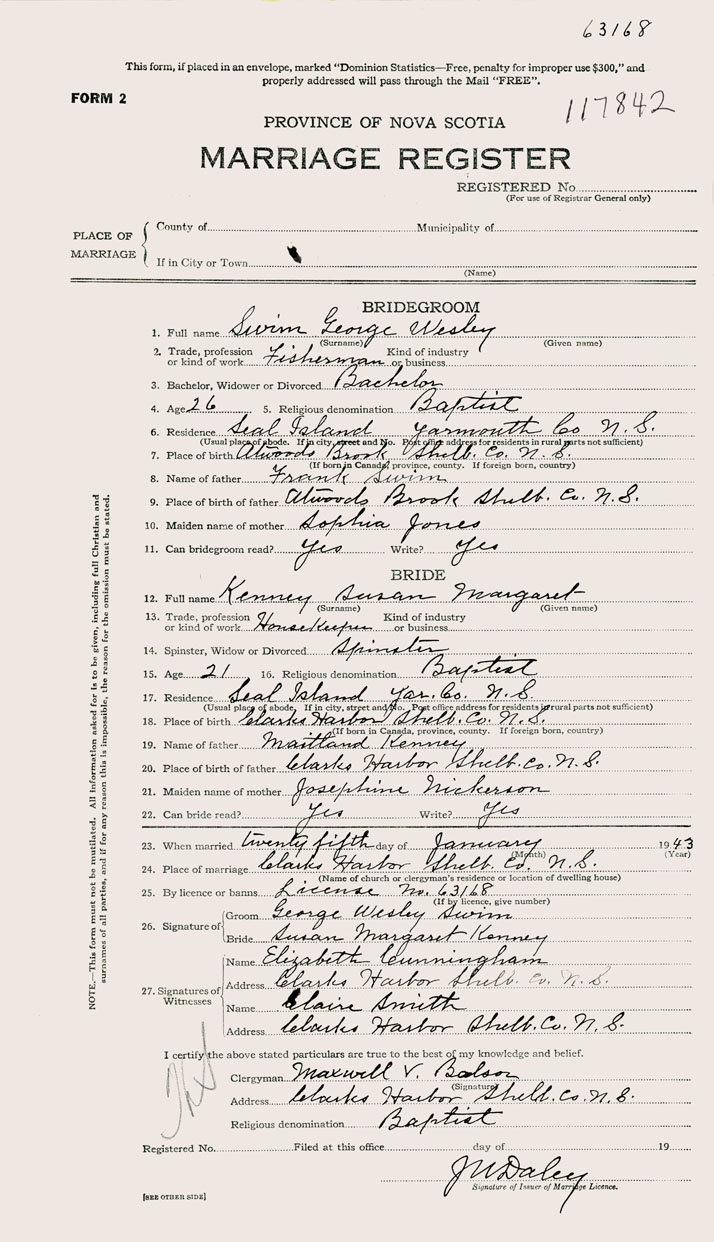 63168
This form, if placed in an envelope, marked "Dominion Statistics—Free, penalty for improper use $300," and
properly addressed will pass through the Mail "FREE".
FORM 2
117842
PROVINCE OF NOVA SCOTIA
MARRIAGE REGISTER
REGISTERED No.
(For use of Registrar General only)
PLACE OF MARRIAGE
County of Municipality of
If in City or Town
(Name)
BRIDEGROOM
1. Full name Swim George Wesley
(Surname) (Given name)
2. Trade, profession or kind of work Fisherman Kind of industry or business
3. Bachelor, Widower or Divorced Bachelor
4. Age 26 5. Religious denomination Baptist
6. Residence Seal Island Yarmouth Co N.S.
(Usual place of abode. If in city, street and No. Post office address for residents in rural parts not sufficient)
7. Place of birth Atwoods Brook Shelb. Co. N.S.
(If born in Canada, province, county. If foreign born, country)
8. Name of father Frank Swim
9. Place of birth of father Atwoods Brook Shelb. Co. N.S.
10. Maiden name of mother Sophia Jones
11. Can bridegroom read? Yes Write? Yes
BRIDE
12. Full name Kenney Susan Margaret
(Surname) (Given name)
13. Trade, profession or kind of work HouseKeeper Kind of industry or business
14. Spinster, Widow or Divorced Spinster
15. Age 21 16. Religious denomination Baptist
17. Residence Seal Island Yar. Co. N.S.
(Usual place of abode. If in city, street and No. Post office address for residents in rural parts not sufficient)
18. Place of birth Clarks Harbor Shelb. Co. N.S.
(If born in Canada, province, county. If foreign born, country)
19. Name of father Maitland Kenney
20. Place of birth of father Clarks Harbor Shelb. Co. N.S.
21. Maiden name of mother Josephine Nickerson
22. Can bride read? Yes Write? Yes
23. When married twenty fifth day of January 1943
(Month) (Year)
24. Place of marriage Clarks Harbor Shelb. Co. N.S.
(Name of church or clergyman's residence or location of dwelling house)
25. By licence or banns License No. 63168
(If by licence, give number)
26. Signature of
Groom George Wesley Swim
Bride Susan Margaret Kenney
27. Signatures of Witnesses
Name Elizabeth Cunningham
Address Clarks Harbor Shelb. Co. N.S.
Name Claire Smith
Address Clarks Harbor Shelb. Co. N.S.
I certify the above stated particulars are true to the best of my knowledge and belief.
Clergyman Maxwell V. Bolson
(Signature)
Address Clarks Harbor Shelb. Co. N.S.
Religious denomination Baptist
Registered No. Filed at this office day of 19
Signature of Issuer of Marriage Licence.
[SEE OTHER SIDE]
NOTE.—This form must not be mutilated. All Information asked for is to be given, including full Christian and
surnames of all parties, and if for any reason this is impossible, the reason for the omission must be stated.